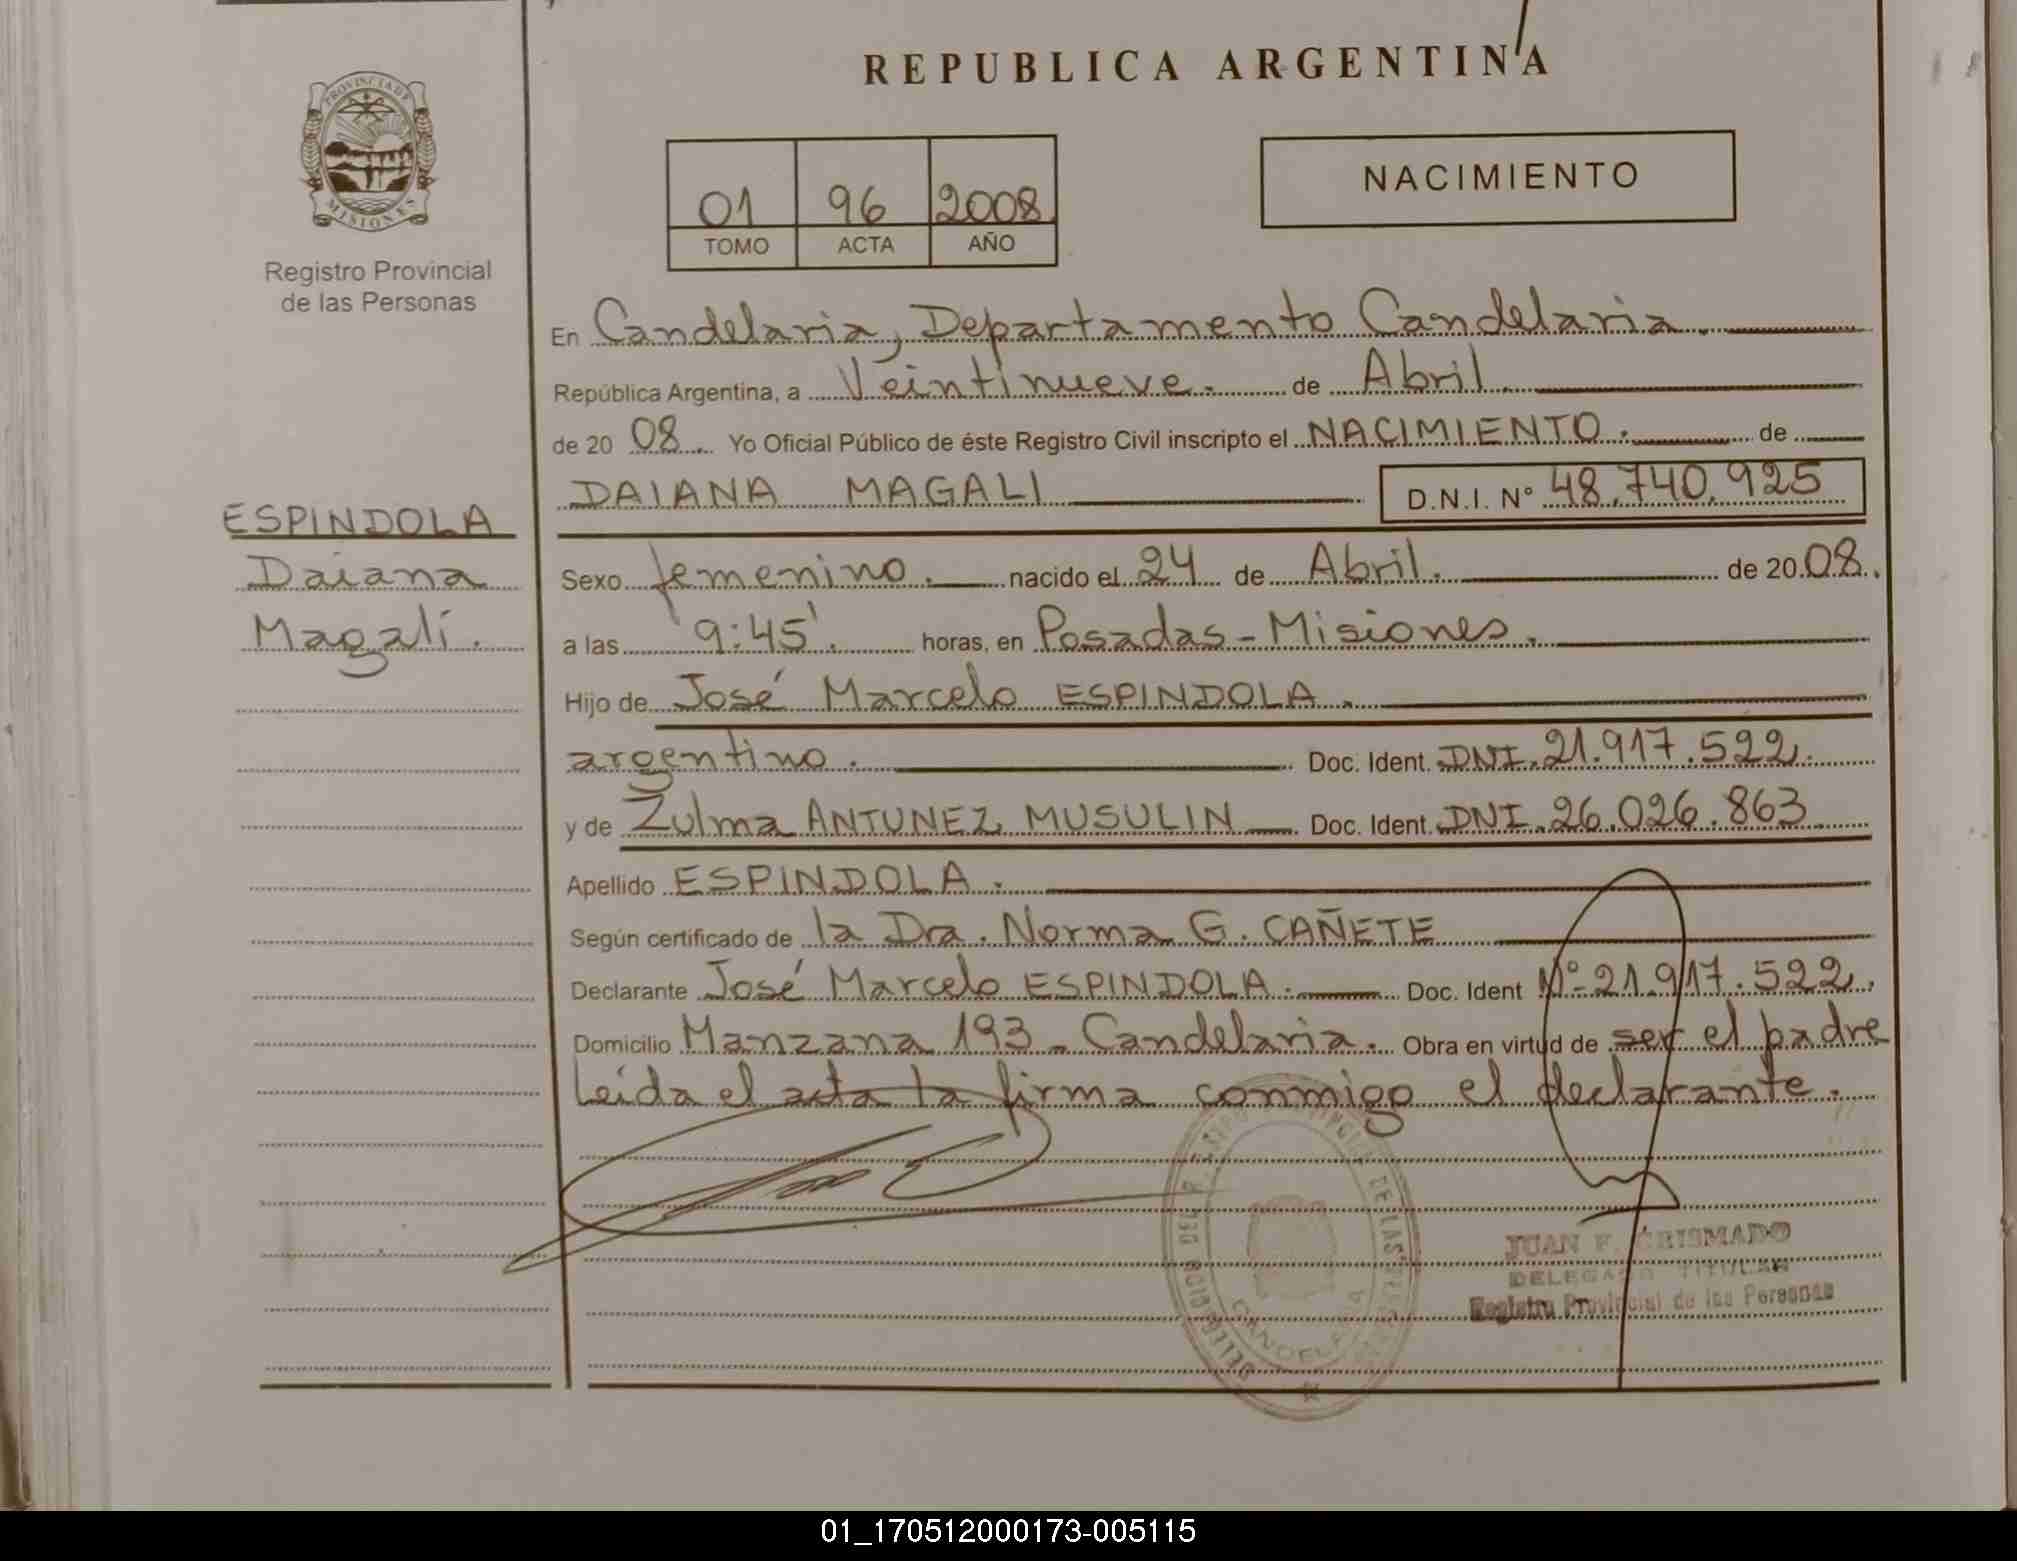 REPUBLICA ARGENTINA
PROVINCIA DE
MISIONES
Registro Provincial
de las Personas
01 96 2008
TOMO ACTA AÑO
NACIMIENTO
En Candelaria, Departamento Candelaria.
República Argentina, a Veintinueve. de Abril.
de 20 08. Yo Oficial Público de éste Registro Civil inscripto el NACIMIENTO. de
DAIANA MAGALI D.N.I. Nº 48.740.925
ESPINDOLA
Daiana
Magalí.
Sexo femenino. nacido el 24 de Abril. de 20 08.
a las 9:45'. horas, en Posadas - Misiones.
Hijo de José Marcelo ESPINDOLA.
argentino. Doc. Ident. DNI. 21.917.522.
y de Zulma ANTUNEZ MUSULIN Doc. Ident. DNI. 26.026.863
Apellido ESPINDOLA.
Según certificado de la Dra. Norma G. CAÑETE
Declarante José Marcelo ESPINDOLA. Doc. Ident Nº 21.917.522.
Domicilio Manzana 193 - Candelaria. Obra en virtud de ser el padre
Leída el acta la firma conmigo el declarante.
JUAN F. CRISMADO
DELEGADO TITULAR
Registro Provincial de las Personas
CANDELARIA
01_170512000173-005115